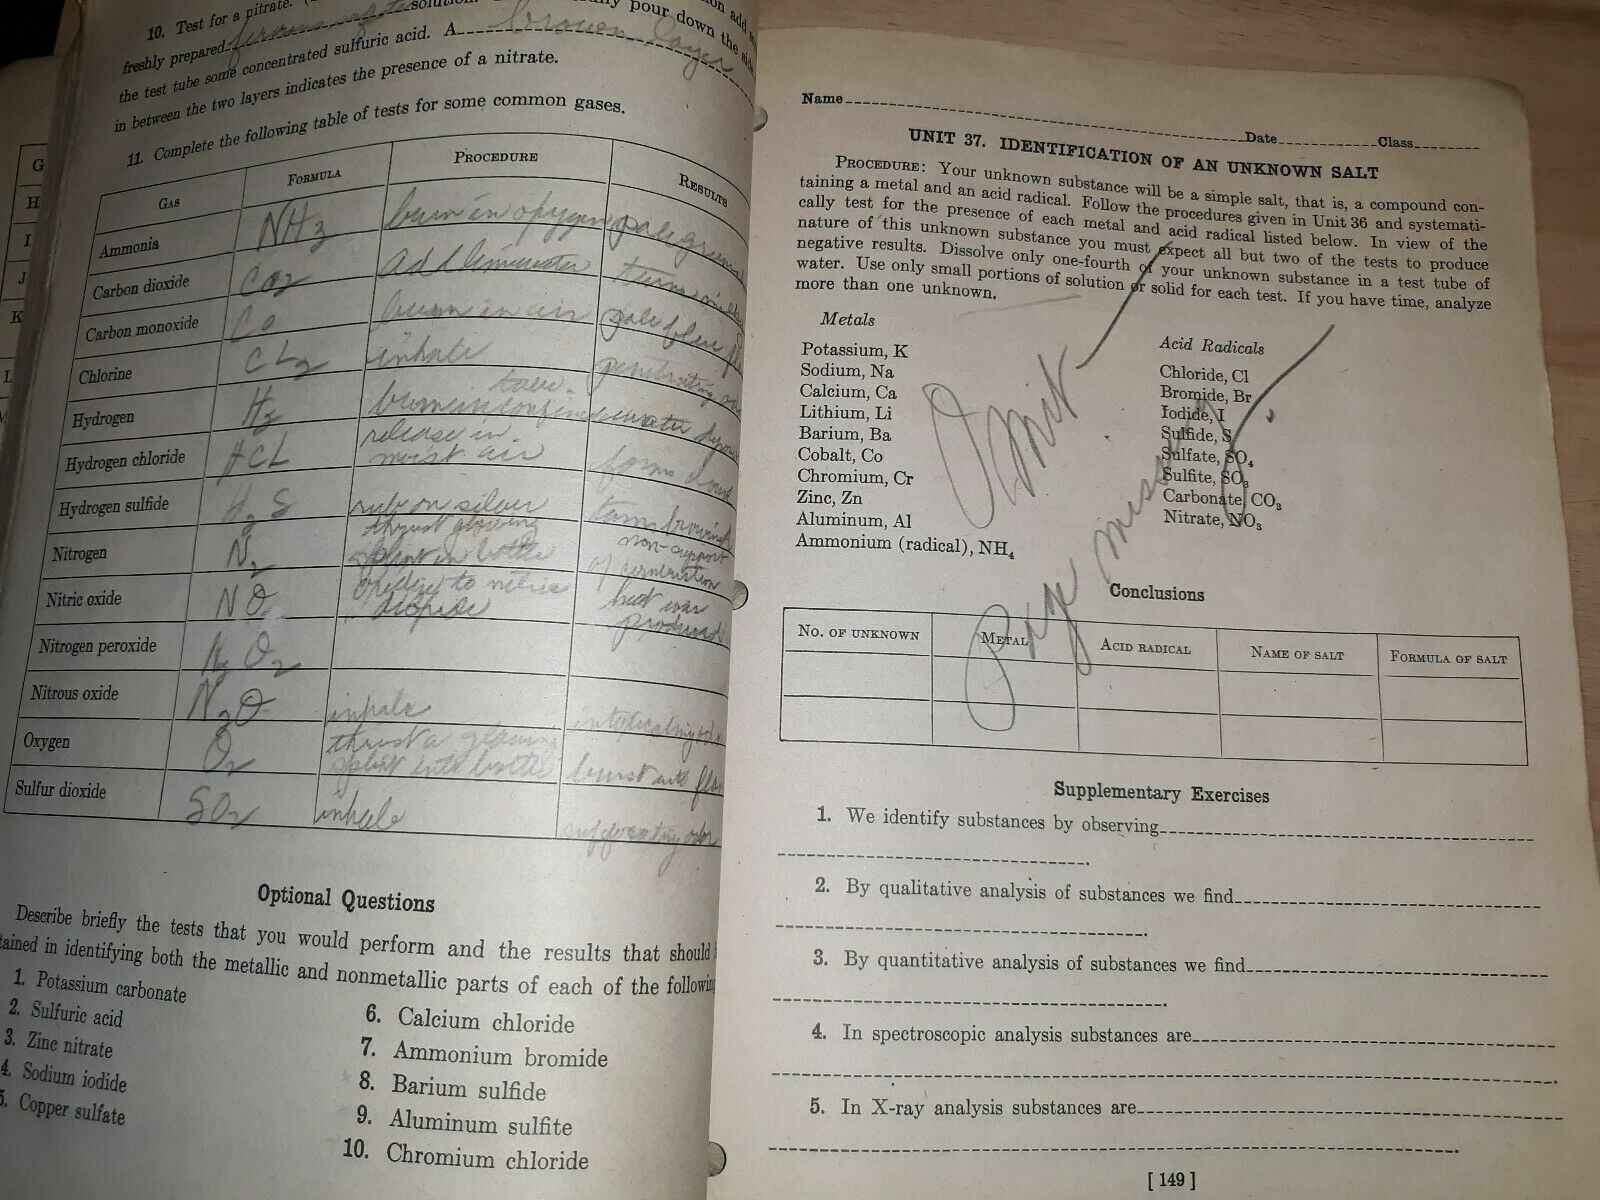 10. Test for a nitrate.
solution.
pour down the side
freshly prepared
the test tube some concentrated sulfuric acid. A brown layer
in between the two layers indicates the presence of a nitrate.
11. Complete the following table of tests for some common gases.
GAS FORMULA PROCEDURE RESULTS
Ammonia NH3 burn in oxygen pale green
Carbon dioxide CO2 add limewater turns milky
Carbon monoxide CO burn in air pale blue
Chlorine CL2 inhale penetrating
Hydrogen H2
Hydrogen chloride HCL release in moist air forms
Hydrogen sulfide H2S rub on silver turns brownish
Nitrogen N2 thrust glowing splint in bottle non-support of combustion
Nitric oxide NO
Nitrogen peroxide
Nitrous oxide N2O inhale
Oxygen O2 thrust a glowing splint into bottle burst into
Sulfur dioxide SO2 inhale suffocating odor
Optional Questions
Describe briefly the tests that you would perform and the results that should
tained in identifying both the metallic and nonmetallic parts of each of the following
1. Potassium carbonate
2. Sulfuric acid
3. Zinc nitrate
4. Sodium iodide
5. Copper sulfate
6. Calcium chloride
7. Ammonium bromide
8. Barium sulfide
9. Aluminum sulfite
10. Chromium chloride
Name Date Class
UNIT 37. IDENTIFICATION OF AN UNKNOWN SALT
PROCEDURE: Your unknown substance will be a simple salt, that is, a compound con-
taining a metal and an acid radical. Follow the procedures given in Unit 36 and systemati-
cally test for the presence of each metal and acid radical listed below. In view of the
nature of this unknown substance you must expect all but two of the tests to produce
negative results. Dissolve only one-fourth of your unknown substance in a test tube of
water. Use only small portions of solution or solid for each test. If you have time, analyze
more than one unknown.
Metals
Potassium, K
Sodium, Na
Calcium, Ca
Lithium, Li
Barium, Ba
Cobalt, Co
Chromium, Cr
Zinc, Zn
Aluminum, Al
Ammonium (radical), NH4
Acid Radicals
Chloride, Cl
Bromide, Br
Iodide, I
Sulfide, S
Sulfate, SO4
Sulfite, SO3
Carbonate, CO3
Nitrate, NO3
Omit
Page missing
Conclusions
NO. OF UNKNOWN METAL ACID RADICAL NAME OF SALT FORMULA OF SALT
Supplementary Exercises
1. We identify substances by observing
2. By qualitative analysis of substances we find
3. By quantitative analysis of substances we find
4. In spectroscopic analysis substances are
5. In X-ray analysis substances are
[ 149 ]